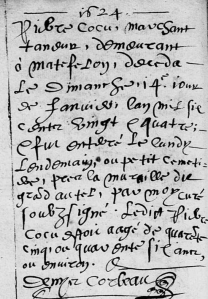 1624
Pierre Cocu, marchant
taneur, demeurant
à Matefeloy, deceda
Le Dimanche 14e. iour
de Janvier lan mil six
centz vingt & quatre.
& fut enterré le lundy
Lendemain, au petit cemeti-
ere, pres la muraille du
grand autel, par moy curé
soubz signé. Ledict Pierre
Cocu estoit aagé de quarente
cinq ou quarente six ans,
ou environ.
Denys Corbeau